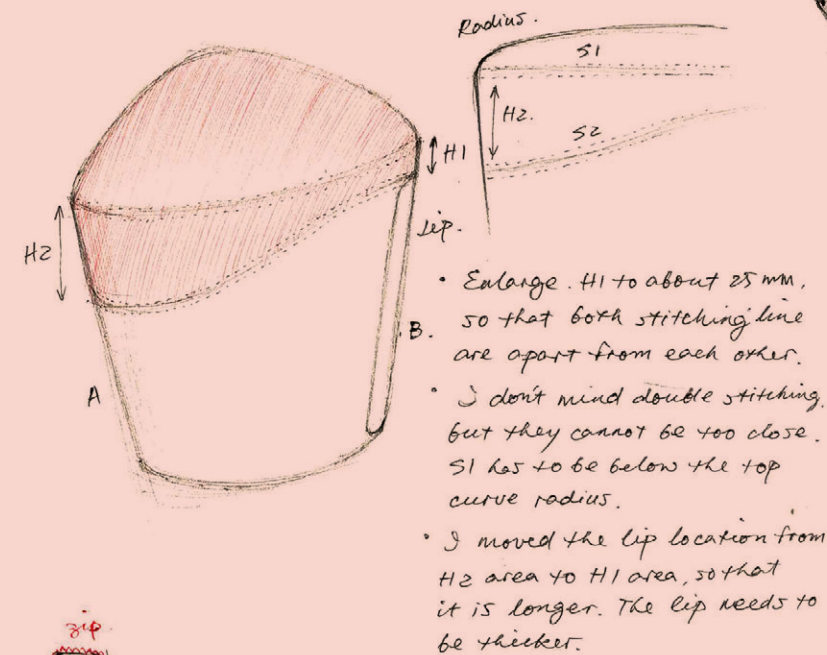 Radius.
S1
H2.
S2
H1
Lip.
H2
A
B.
• Enlarge. H1 to about 25 mm,
so that both stitching line
are apart from each other.
• I don't mind double stitching,
but they cannot be too close.
S1 has to be below the top
curve radius.
• I moved the lip location from
H2 area to H1 area, so that
it is longer. The lip needs to
be thicker.
zip